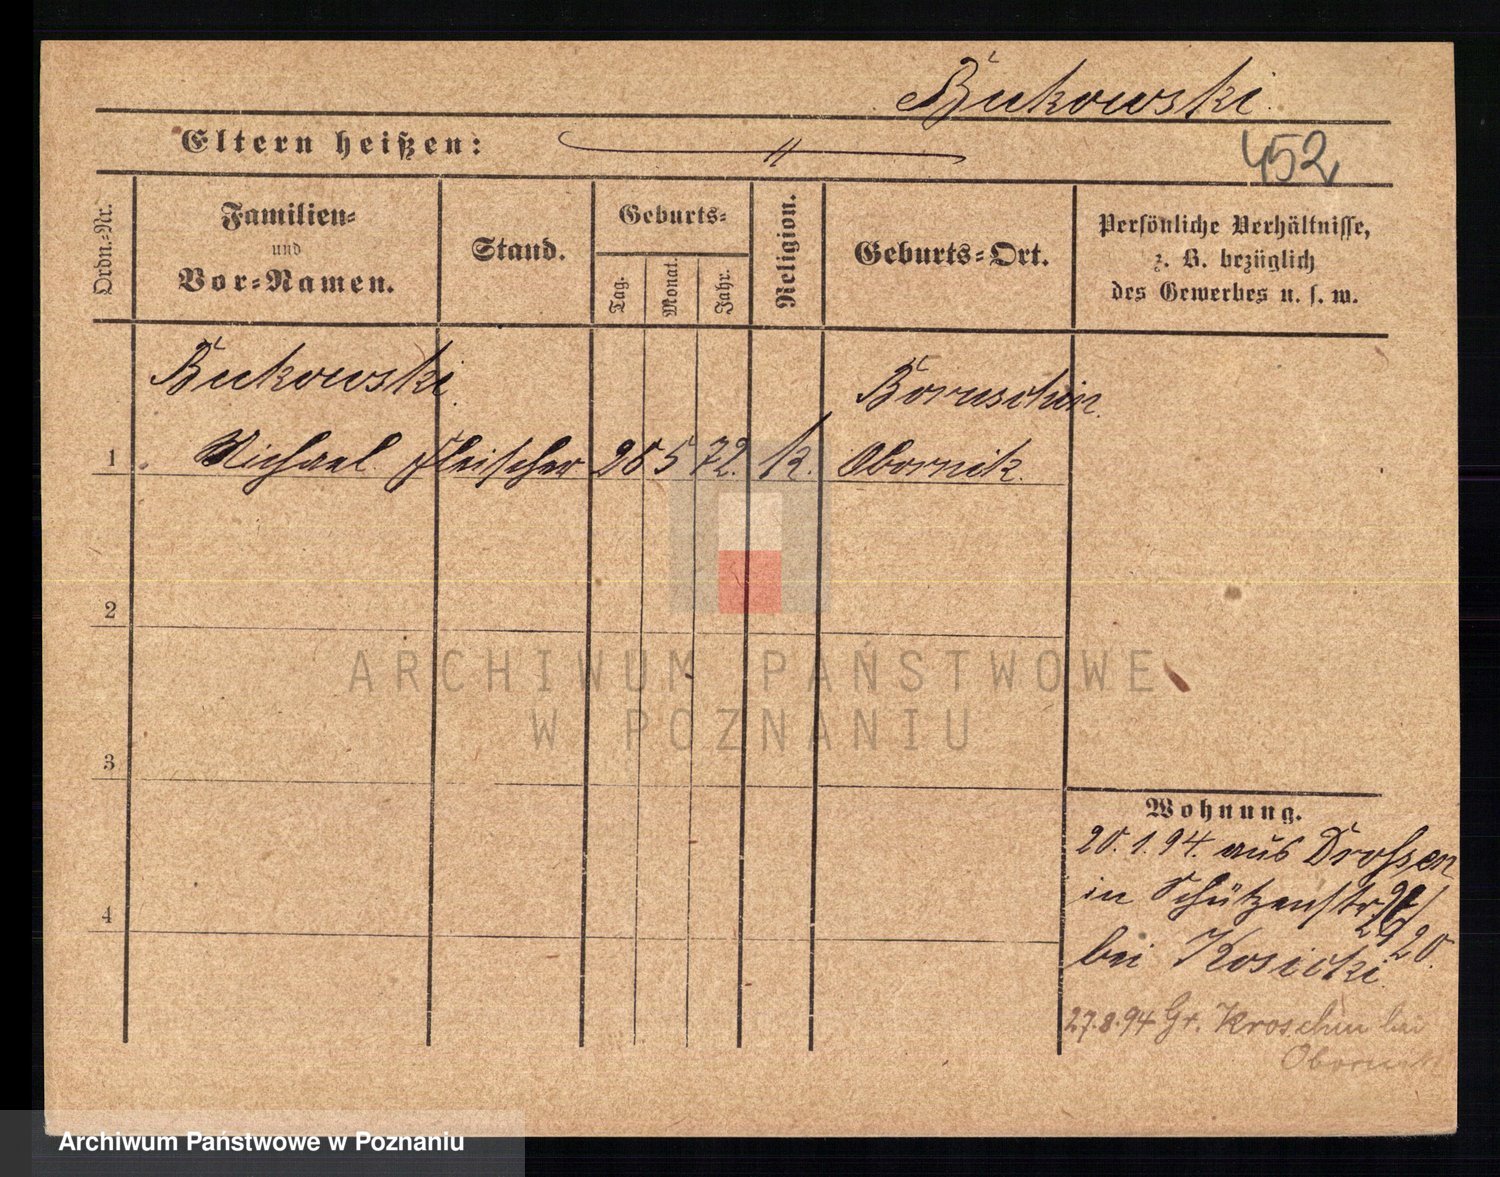 Bukowski.
Eltern heißen:
452
Ordn.-Nr.
Familien-
und
Vor-Namen.
Stand.
Geburts-
Tag.
Monat.
Jahr.
Religion.
Geburts-Ort.
Persönliche Verhältnisse,
z. B. bezüglich
des Gewerbes u. s. w.
Bukowski.
Boruschin.
1 Michael Fleischer 28 5 72. k. Obornik.
2
3
4
Wohnung.
20.1.94. aus Drossen
in Schützenstr.
20.
bei Kosicki.
27.8.94 Gr. Kroschin bei
Obornik
ARCHIWUM PAŃSTWOWE
W POZNANIU
Archiwum Państwowe w Poznaniu